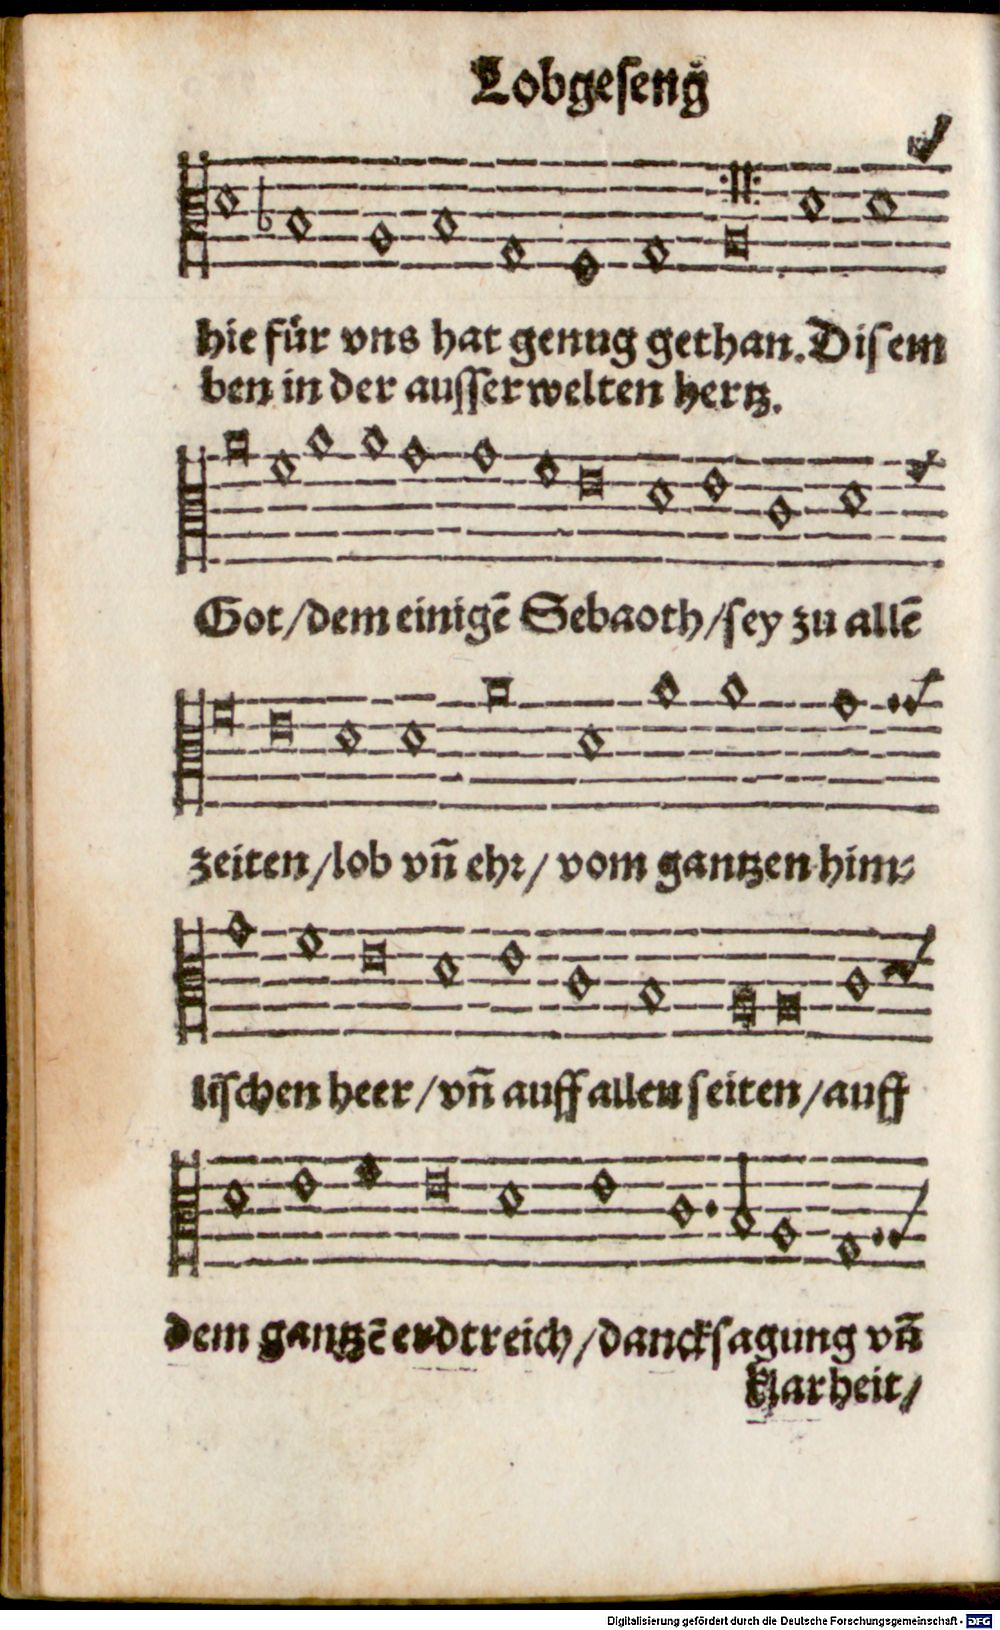 Lobgeseng
hie für vns hat genug gethan. Disem
ben in der ausserwelten hertz.
Got/dem einigē Sebaoth/sey zu allē
zeiten/lob vñ ehr/vom gantzen him-
lischen heer/vñ auff allen seiten/auff
dem gantzē erdtreich/dancksagung vñ
klarheit/
Digitalisierung gefördert durch die Deutsche Forschungsgemeinschaft - DFG